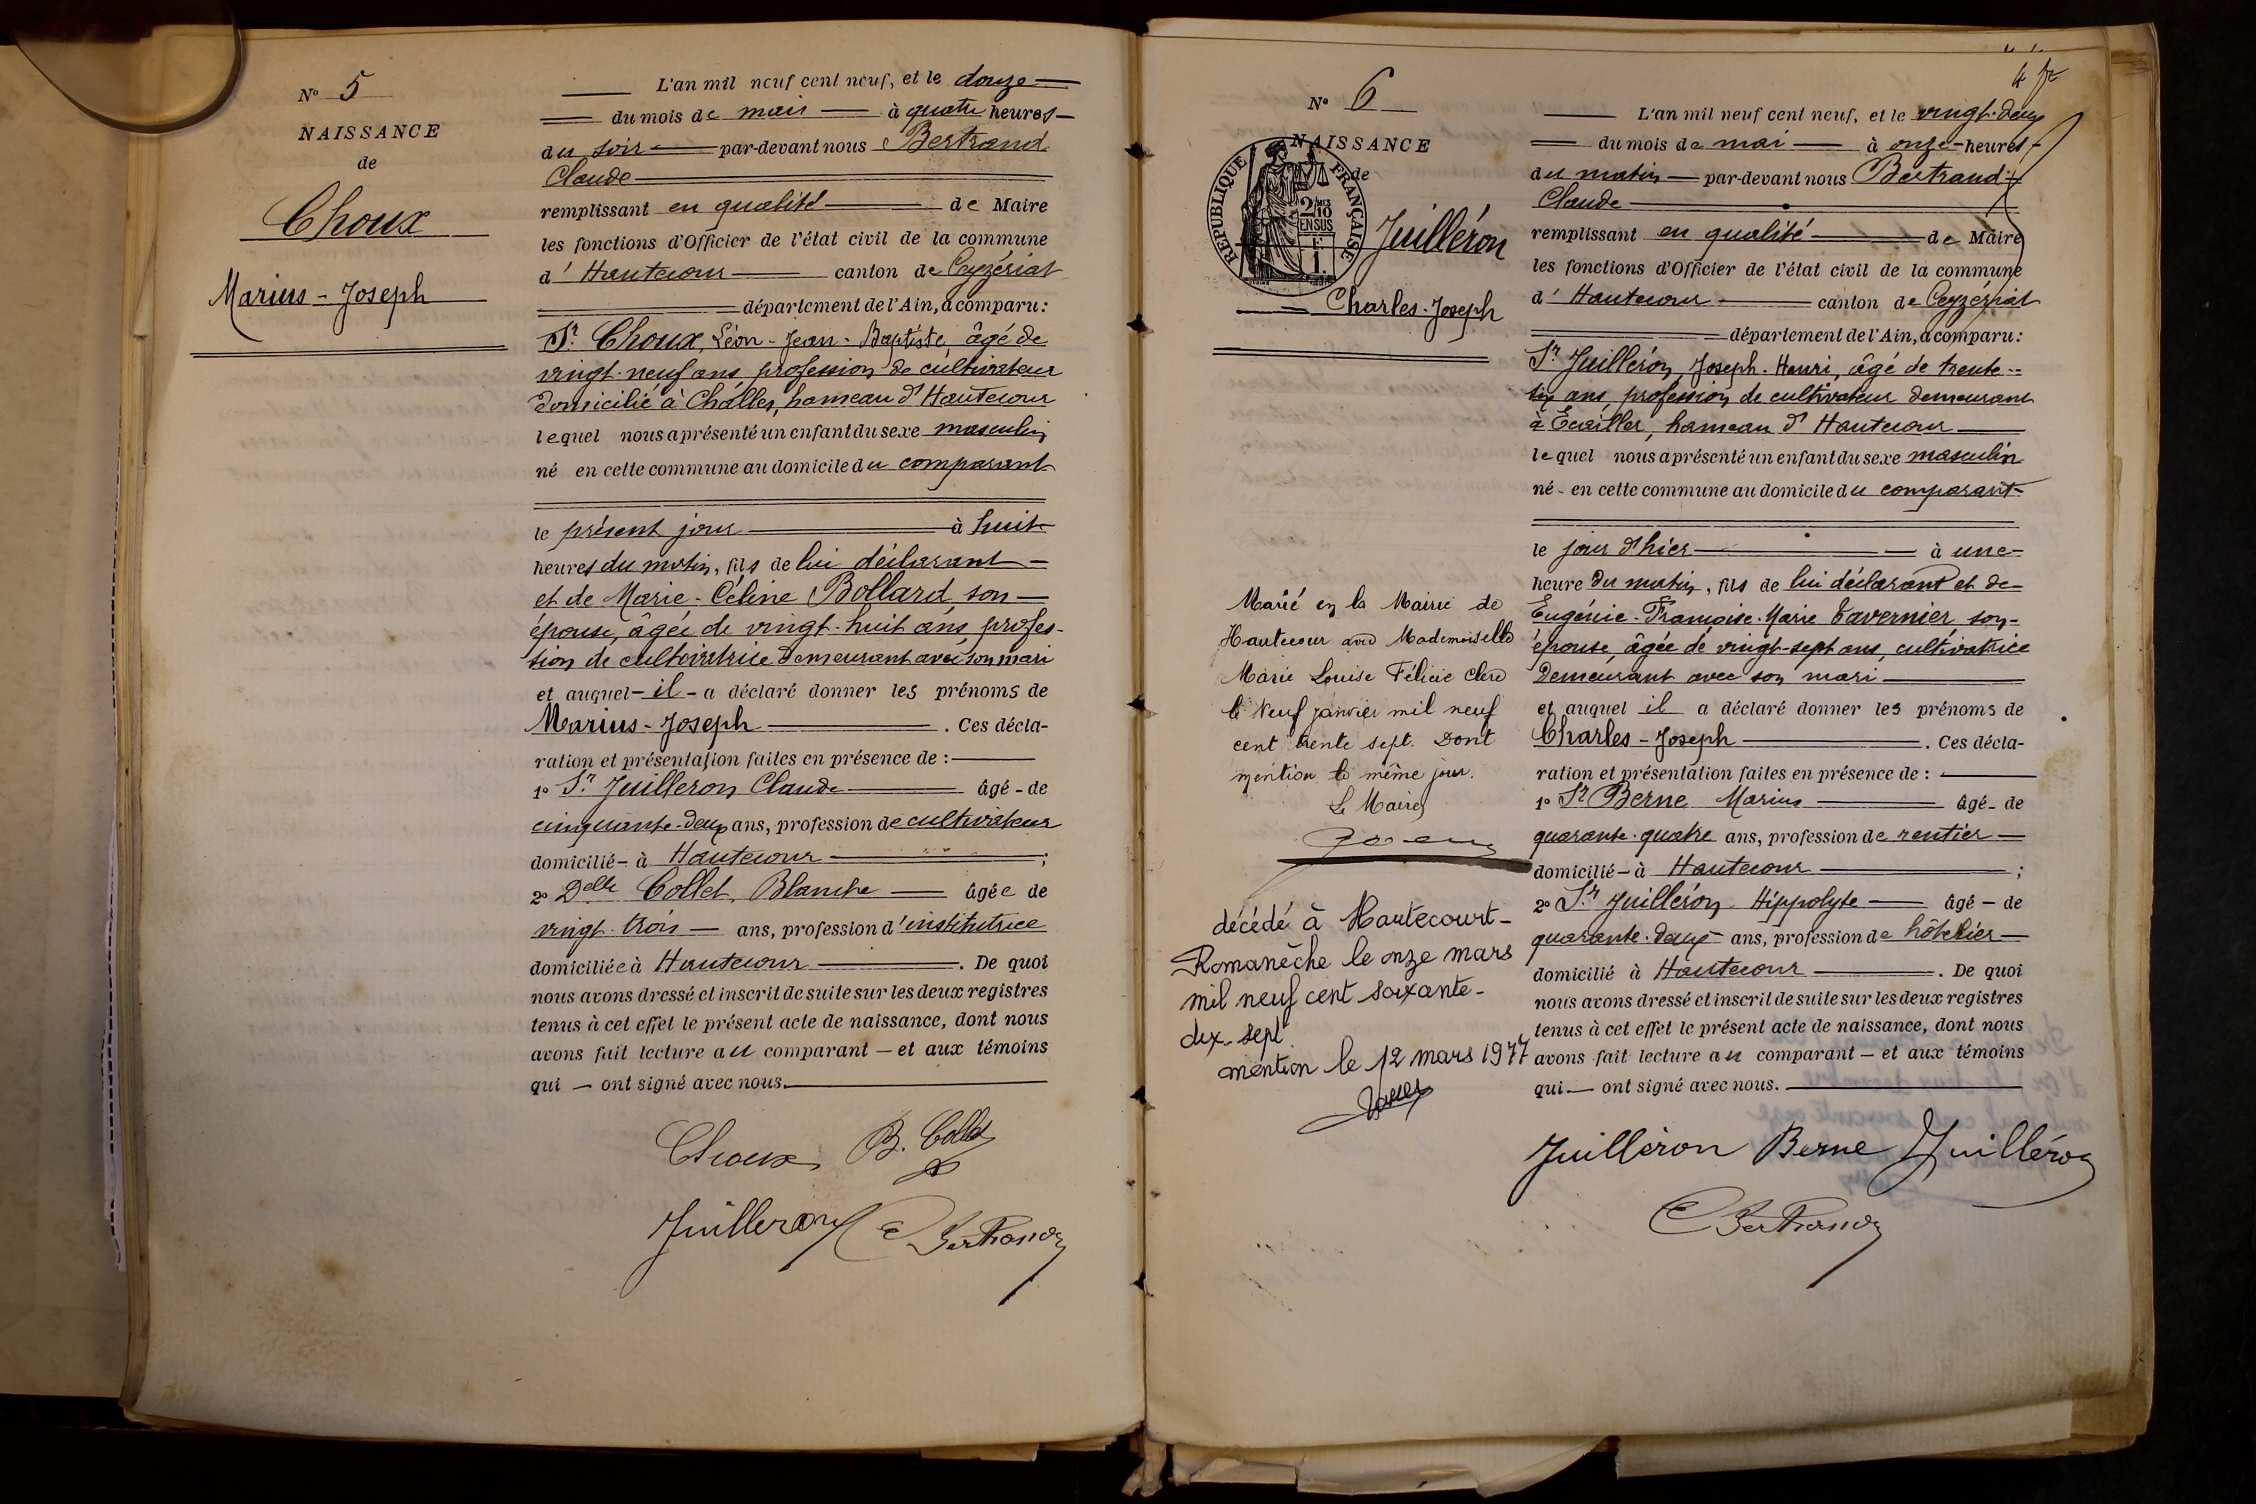 N° 5
NAISSANCE
de
Choux
Marius-Joseph
L'an mil neuf cent neuf, et le douze
du mois de mai à quatre heures
du soir par-devant nous Bertrand
Claude
remplissant en qualité de Maire
les fonctions d'Officier de l'état civil de la commune
d'Hautecour canton de Ceyzériat
département de l'Ain, a comparu:
Sr. Choux, Léon-Jean-Baptiste, âgé de
vingt-neuf ans, profession de cultivateur
domicilié à Challes, hameau d'Hautecour
lequel nous a présenté un enfant du sexe masculin
né en cette commune au domicile du comparant
le présent jour à huit
heures du matin, fils de lui déclarant
et de Marie-Céline Bollard, son
épouse, âgée de vingt-huit ans, profes-
sion de cultivatrice demeurant avec son mari
et auquel il a déclaré donner les prénoms de
Marius-Joseph. Ces décla-
ration et présentation faites en présence de :
1° Sr. Juilleron Claude âgé de
cinquante-deux ans, profession de cultivateur
domicilié à Hautecour ;
2° Delle Collet, Blanche âgée de
vingt-trois ans, profession d'institutrice
domiciliée à Hautecour. De quoi
nous avons dressé et inscrit de suite sur les deux registres
tenus à cet effet le présent acte de naissance, dont nous
avons fait lecture au comparant et aux témoins
qui ont signé avec nous.
Choux B. Collet
Juilleron C Bertrand
N° 6
NAISSANCE
de
REPUBLIQUE FRANÇAISE
2/10
EN SUS
Juilléron
Charles-Joseph
Marié en la Mairie de
Hautecour avec Mademoiselle
Marie Louise Félicie Clerc
le neuf janvier mil neuf
cent trente sept. Dont
mention le même jour.
Le Maire
décédé à Hautecourt-
Romanèche le onze mars
mil neuf cent soixante-
dix-sept
mention le 12 mars 1977
L'an mil neuf cent neuf, et le vingt-deux
du mois de mai à onze heures
du matin par-devant nous Bertrand
Claude
remplissant en qualité de Maire
les fonctions d'Officier de l'état civil de la commune
d'Hautecour canton de Ceyzériat
département de l'Ain, a comparu:
Sr. Juilléron, Joseph-Henri, âgé de trente-
six ans, profession de cultivateur demeurant
à Ecailles, hameau d'Hautecour
lequel nous a présenté un enfant du sexe masculin
né en cette commune au domicile du comparant
le jour d'hier à une
heure du matin, fils de lui déclarant et de
Eugénie-Françoise-Marie Tavernier, son
épouse, âgée de vingt-sept ans, cultivatrice
demeurant avec son mari
et auquel il a déclaré donner les prénoms de
Charles-Joseph. Ces décla-
ration et présentation faites en présence de :
1° Sr Berne Marius âgé de
quarante-quatre ans, profession de rentier
domicilié à Hautecour ;
2° Sr. Juilléron Hippolyte âgé de
quarante-deux ans, profession de hôtelier
domicilié à Hautecour. De quoi
nous avons dressé et inscrit de suite sur les deux registres
tenus à cet effet le présent acte de naissance, dont nous
avons fait lecture au comparant et aux témoins
qui ont signé avec nous.
Juilléron Berne Juilléron
C Bertrand